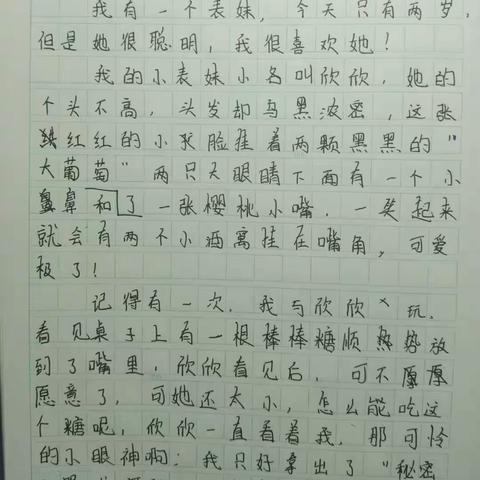 我有一个表妹，今天只有两岁，
但是她很聪明，我很喜欢她！
我的小表妹小名叫欣欣，她的
个头不高，头发却乌黑浓密，这张
红红的小灰脸挂着两颗黑黑的“
大葡萄”两只大眼睛下面有一个小
鼻鼻和了一张樱桃小嘴．一笑起来
就会有两个小酒窝挂在嘴角，可爱
极了！
记得有一次．我与欣欣玩．
看见桌子上有一根棒棒糖顺热势放
到了嘴里，欣欣看见后．可不厚厚
愿意了，可她还太小，怎么能吃这
个糖呢，欣欣一直看着我．那可怜
的小眼神啊；我只好拿出了“秘密